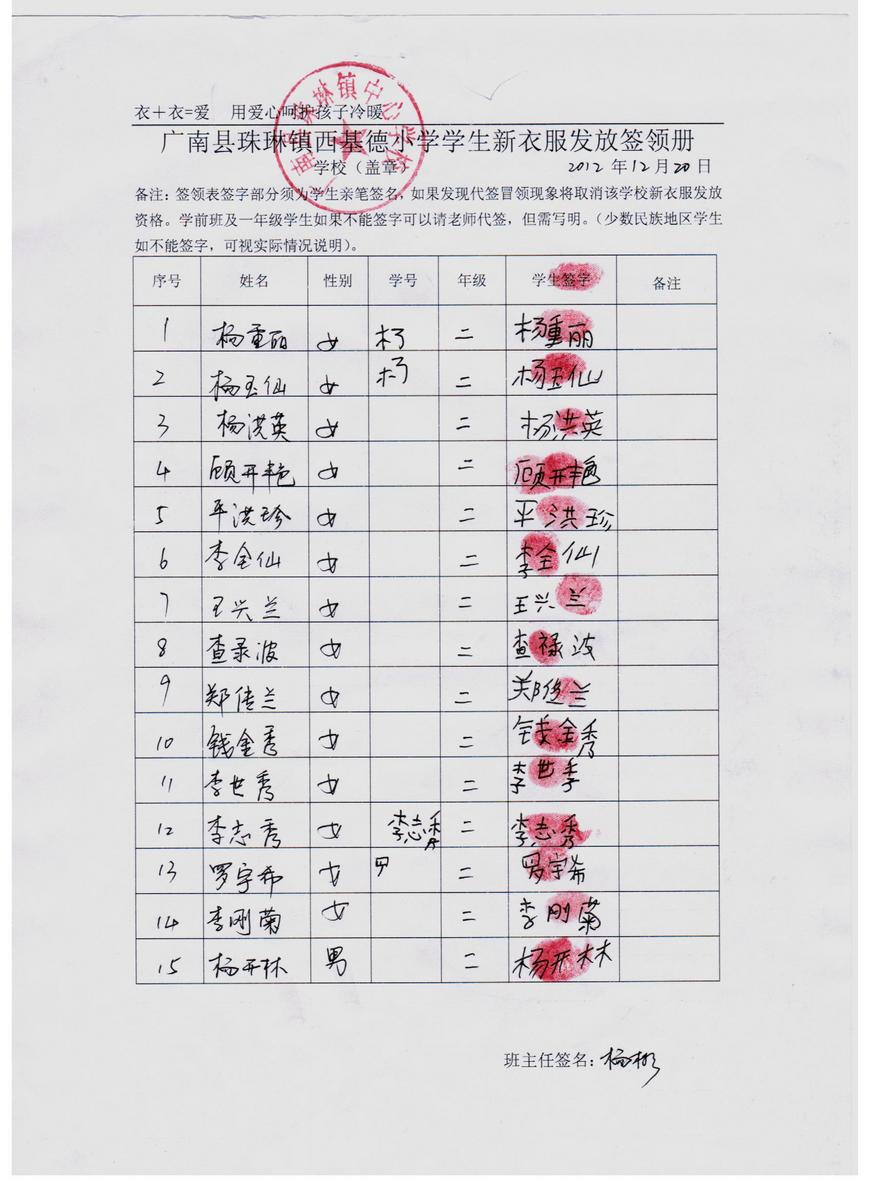 衣+衣=爱 用爱心呵护孩子冷暖
广南县珠琳镇西基德小学学生新衣服发放签领册
学校（盖章） 2012 年 12 月 20 日
备注：签领表签字部分须为学生亲笔签名，如果发现代签冒领现象将取消该学校新衣服发放
资格。学前班及一年级学生如果不能签字可以请老师代签，但需写明。（少数民族地区学生
如不能签字，可视实际情况说明）。
序号 姓名 性别 学号 年级 学生签字 备注
1 杨重丽 女 杨 二 杨重丽
2 杨玉仙 女 杨 二 杨玉仙
3 杨洪英 女 二 杨洪英
4 顾开艳 女 二 顾开艳
5 平洪珍 女 二 平洪珍
6 李金仙 女 二 李金仙
7 王兴兰 女 二 王兴兰
8 查录波 女 二 查禄波
9 郑传兰 女 二 郑 兰
10 钱金秀 女 二 钱金秀
11 李世秀 女 二 李世季
12 李志秀 女 李志秀 二 李志秀
13 罗宇希 女 罗 二 罗宇希
14 李刚菊 女 二 李刚菊
15 杨开林 男 二 杨开林
班主任签名：杨彬